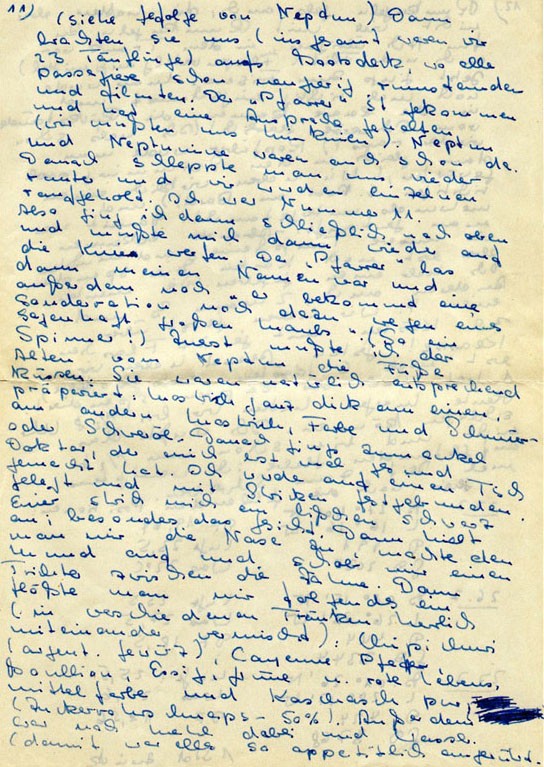 11)
(siehe Gefolge von Neptun) Dann
brachten sie uns (insgesamt waren wir
23 Täuflinge) aufs Bootsdeck wo alle
Passagiere schon neugierig rumstanden
und filmten. Der "Pfarrer" ist gekommen
und hat eine Ansprache gehalten
(wir mußten uns hinknien). Neptun
und Neptunine waren auch schon da.
Danach schleppte man uns wieder
runter und wir wurden einzelnen
raufgeholt. Ich war Nummer 11.
Also ging ich dann schließlich nach oben
und mußte mich dann wieder auf
die Knie werfen. Der "Pfarrer" las
dann meinen Namen vor und
außerdem noch "er bekommt eine
Sonderration noch dazu wegen eines
sagenhaft großen Mauls". (So ein
Spinner!) Zuerst mußte ich der
Alten vom Neptun die Füße
küssen. Sie waren natürlich entsprechend
präpariert: Mostrich ganz dick am einen,
am andern Mostrich, Farbe und Schmier-
oder Schweröl. Danach gings zum
Doktor, der mich erst mal gesund
gemacht hat. Ich wurde auf einen Tisch
gelegt und mit Stricken festgebunden.
Einer strich mich ein bißchen schwarz
an, besonders das Gesicht. Dann hielt
man mir die Nase zu, machte den
Mund auf und schob mir einen
Trichter zwischen die Zähne. Dann
flößte man mir folgendes ein
(in verschiedenen Tränken herrlich
miteinander vermischt): Chimichurri
(argent. Gewürz), Cayenne-Pfeffer
Bouillion, Essig, grüne u. rote Lebens-
mittelfarbe und Kaschasch pur
(Zuckerrohrschnaps - 50%). Außerdem
war noch Mehl dabei und
(damit war alles so appetitlich angerührt.